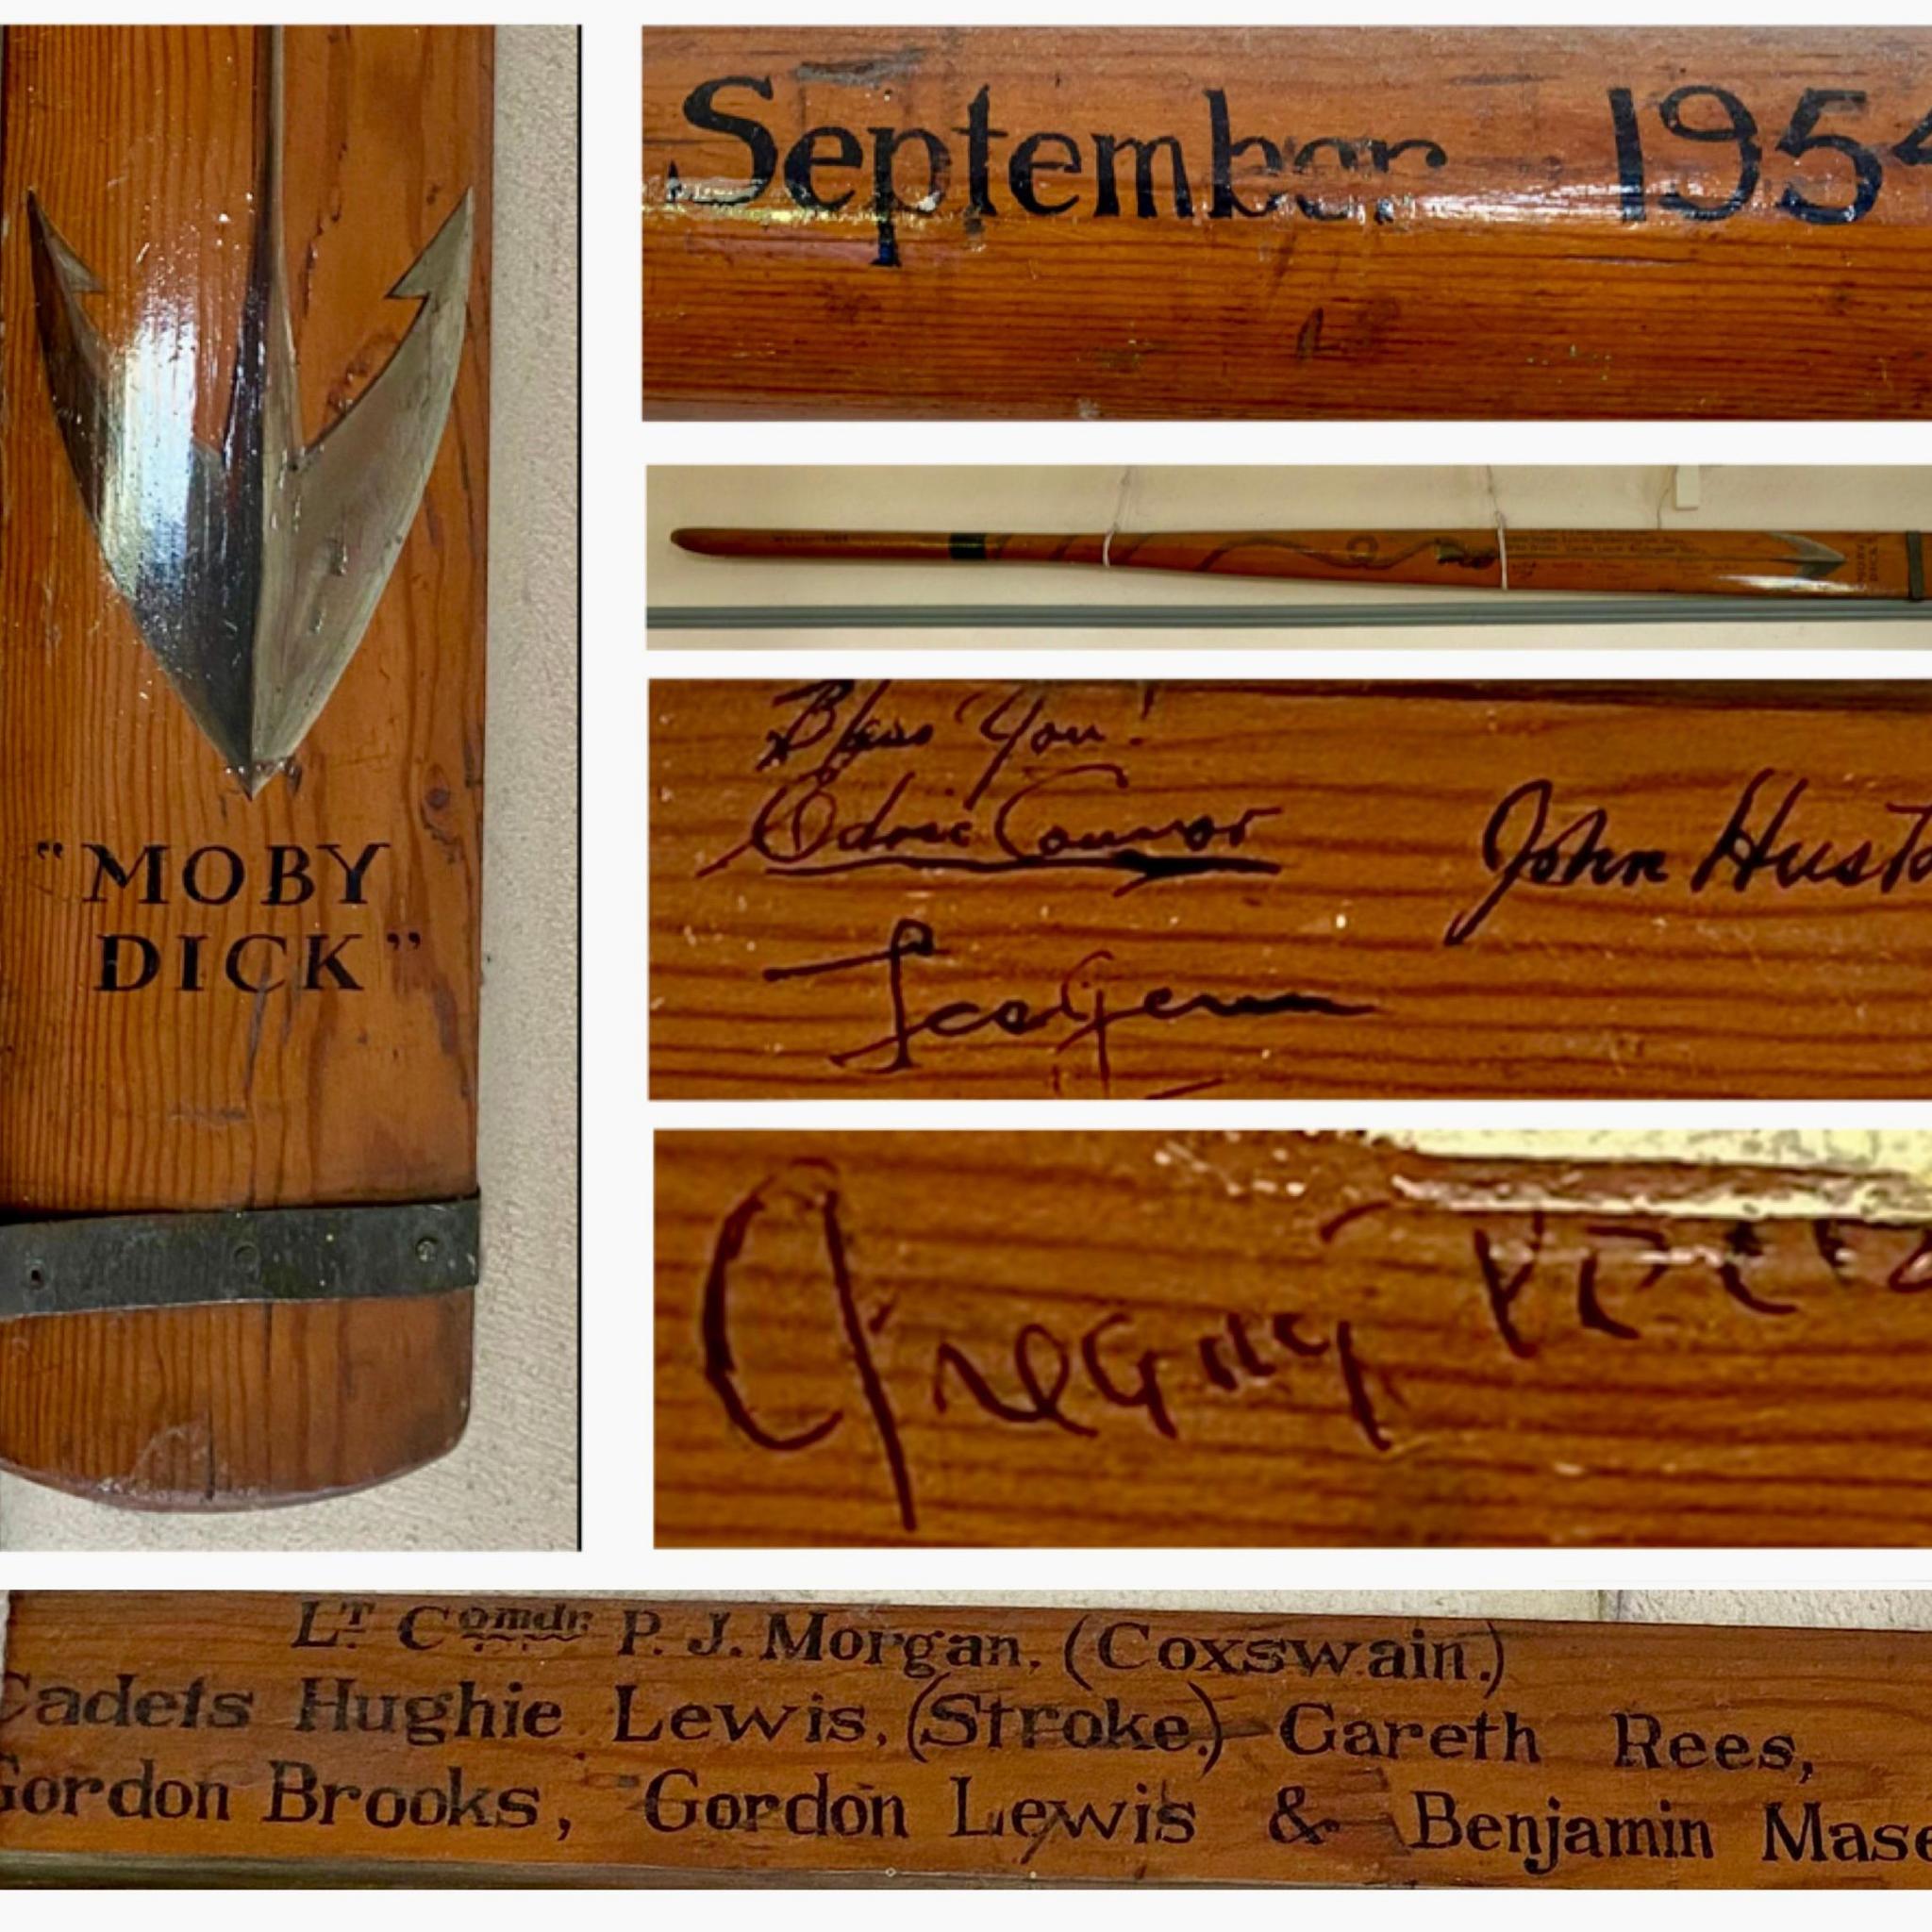 "MOBY
DICK"
September 1954
Bless You!
Edric Connor
John Husto
Leo Genn
Gregory Peck
Lt. Comdr. P. J. Morgan. (Coxswain.)
Cadets Hughie Lewis, (Stroke.) Gareth Rees,
Gordon Brooks, Gordon Lewis & Benjamin Mase